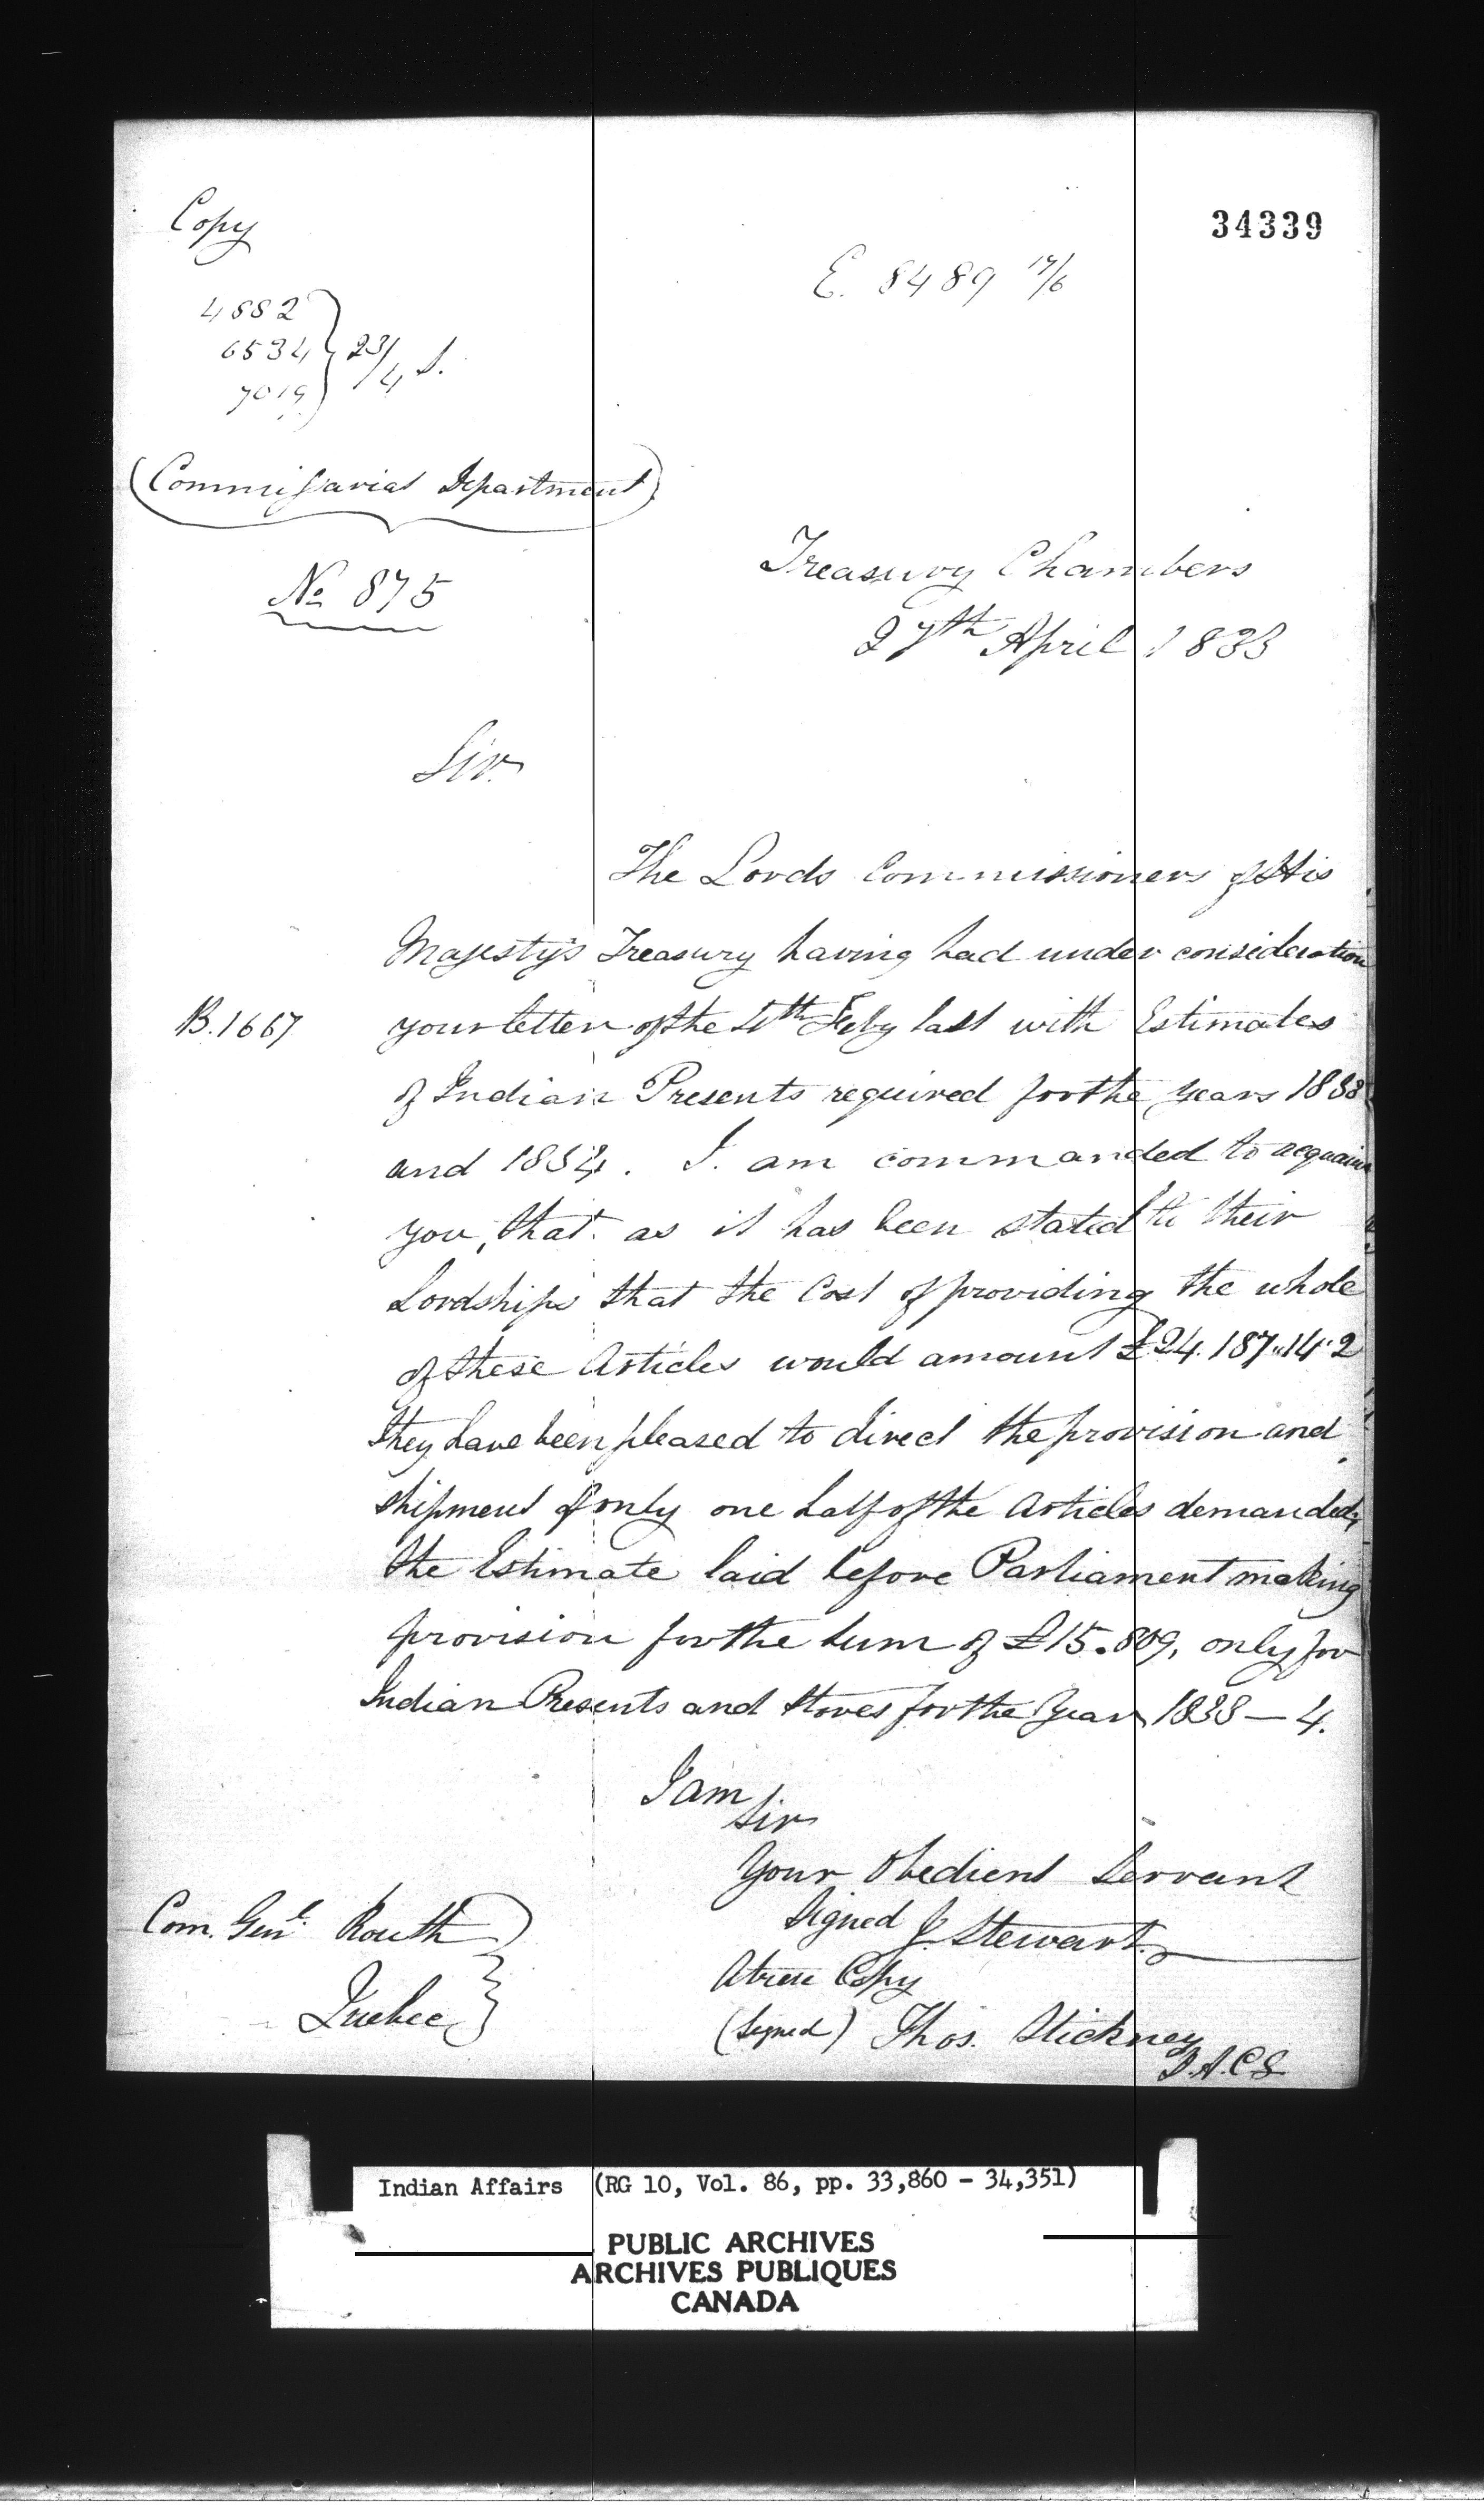 Copy
34339
E. 8489 17/6
4882
6534 } 23/4 S.
7019
(Commissariat Department)
No 875
Treasury Chambers
27th April 1833
Sir.
The Lords Commissioners of His
Majesty's Treasury having had under consideration
B.1667
your letter of the 4th Feby last with Estimates
of Indian Presents required for the years 1833
and 1834. I am commanded to acquaint
you, that as it has been stated to their
Lordships that the Cost of providing the whole
of these Articles would amount £24.187"14"2
they have been pleased to direct the provision and
shipment of only one half of the Articles demanded,
the Estimate laid before Parliament making
provision for the sum of £15.809, only for
Indian Presents and Stores for the Year 1833 — 4.
I am
Sir
Your Obedient Servant
Signed J. Stewart
Com. Genl. Routh
Quebec
A true Copy
(Signed) Thos. Stickney
D.A.C.G
Indian Affairs (RG 10, Vol. 86, pp. 33,860 - 34,351)
PUBLIC ARCHIVES
ARCHIVES PUBLIQUES
CANADA